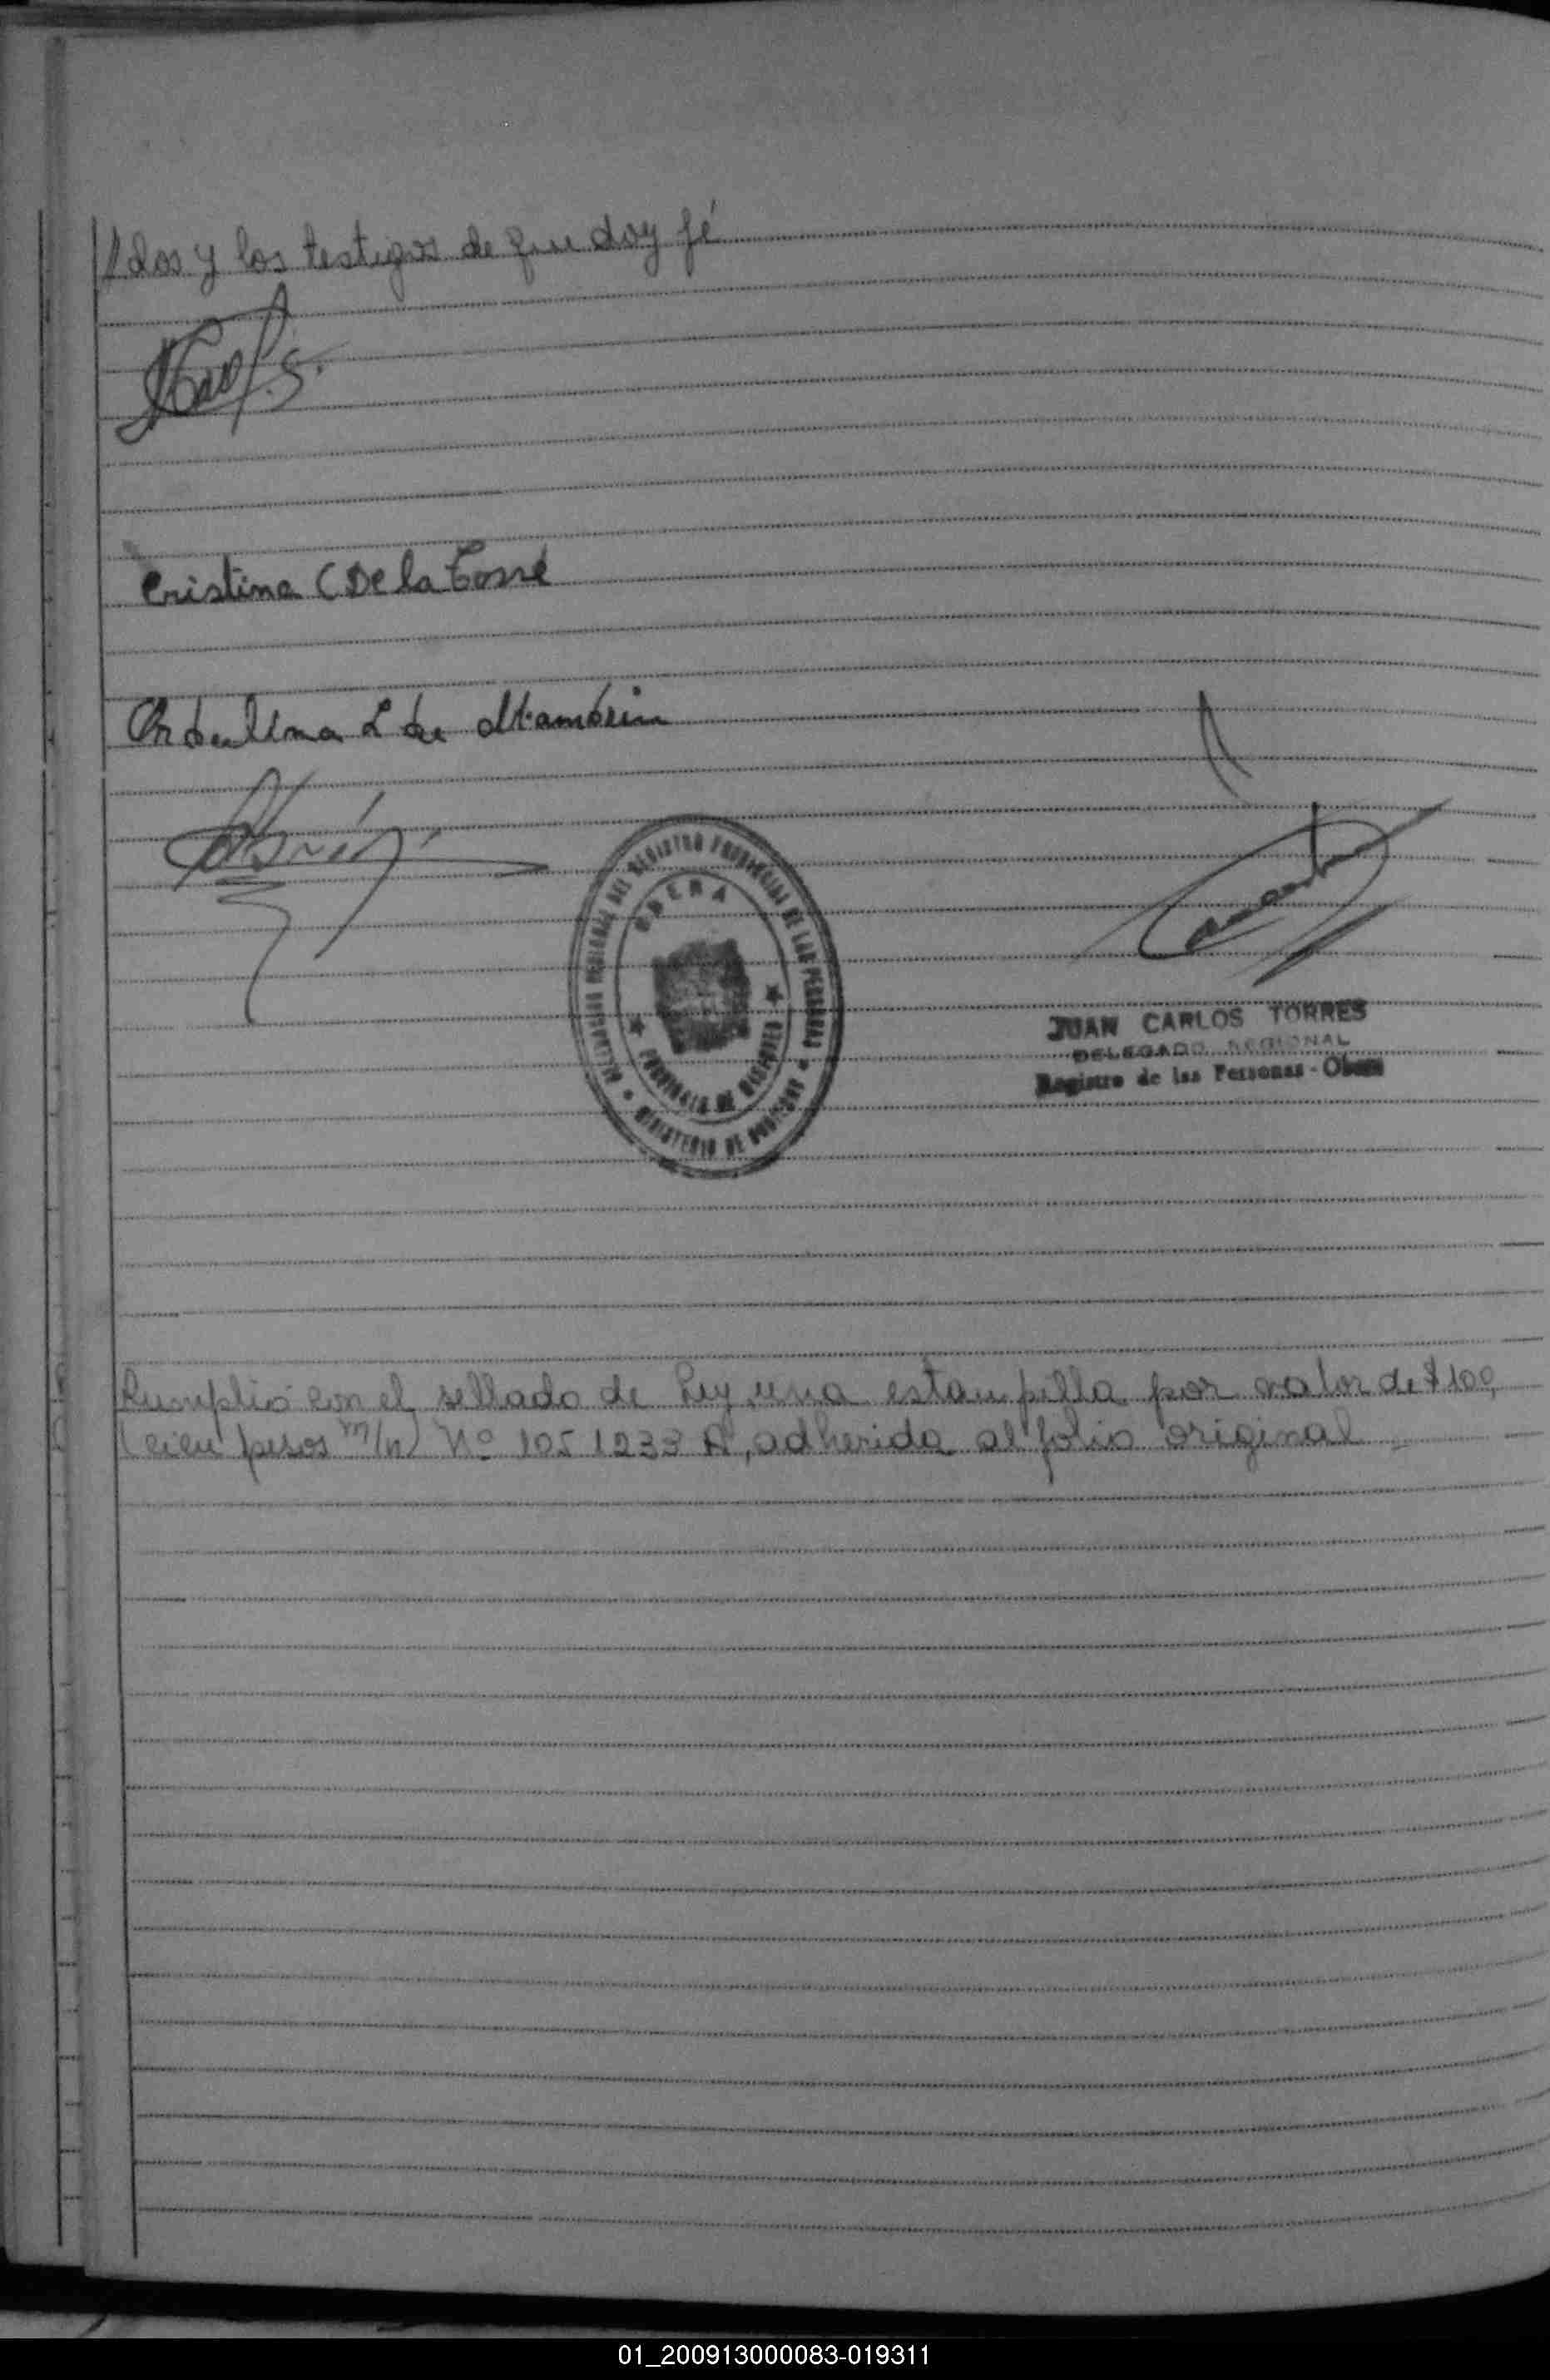 //dos y los testigos de que doy fé
Cristina C De la Torre
Ordulina L de
OBERA
DELEGACION REGIONAL DEL REGISTRO PROVINCIAL DE LAS PERSONAS
PROVINCIA DE MISIONES
MINISTERIO DE
JUAN CARLOS TORRES
DELEGADO REGIONAL
Registro de las Personas - Obera
Cumplió con el sellado de Ley, una estampilla por valor de $ 100,
(cien pesos m/n) Nº 1051233 A, adherida al folio original
01_200913000083-019311